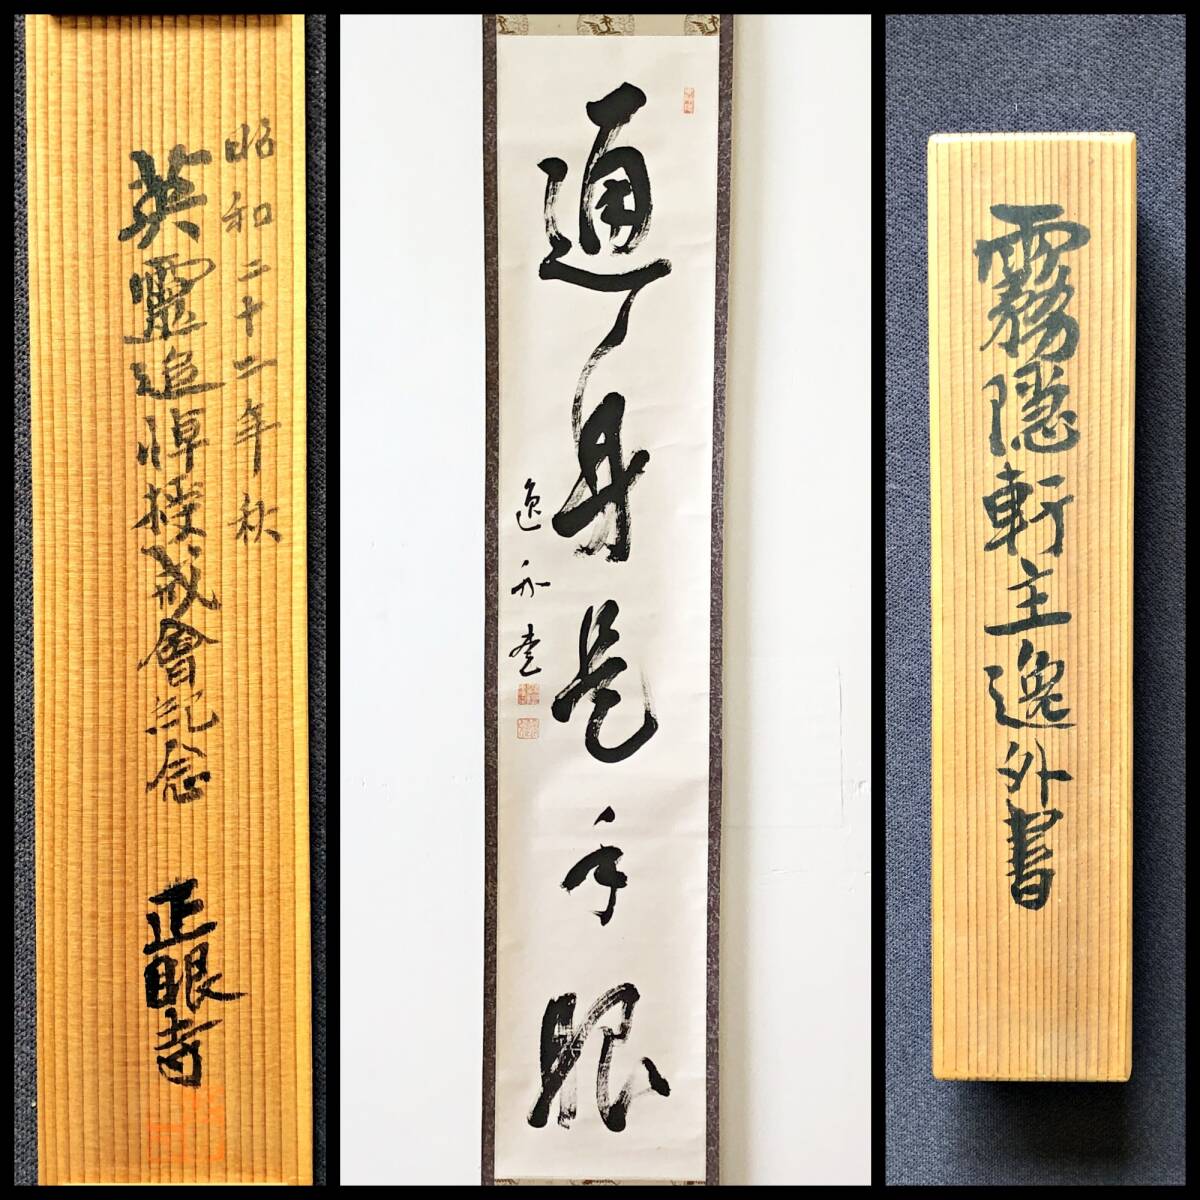 昭和二十二年秋
英靈追悼授戒會紀念 正眼寺
通身是手眼
逸外書
霧隠軒主逸外書